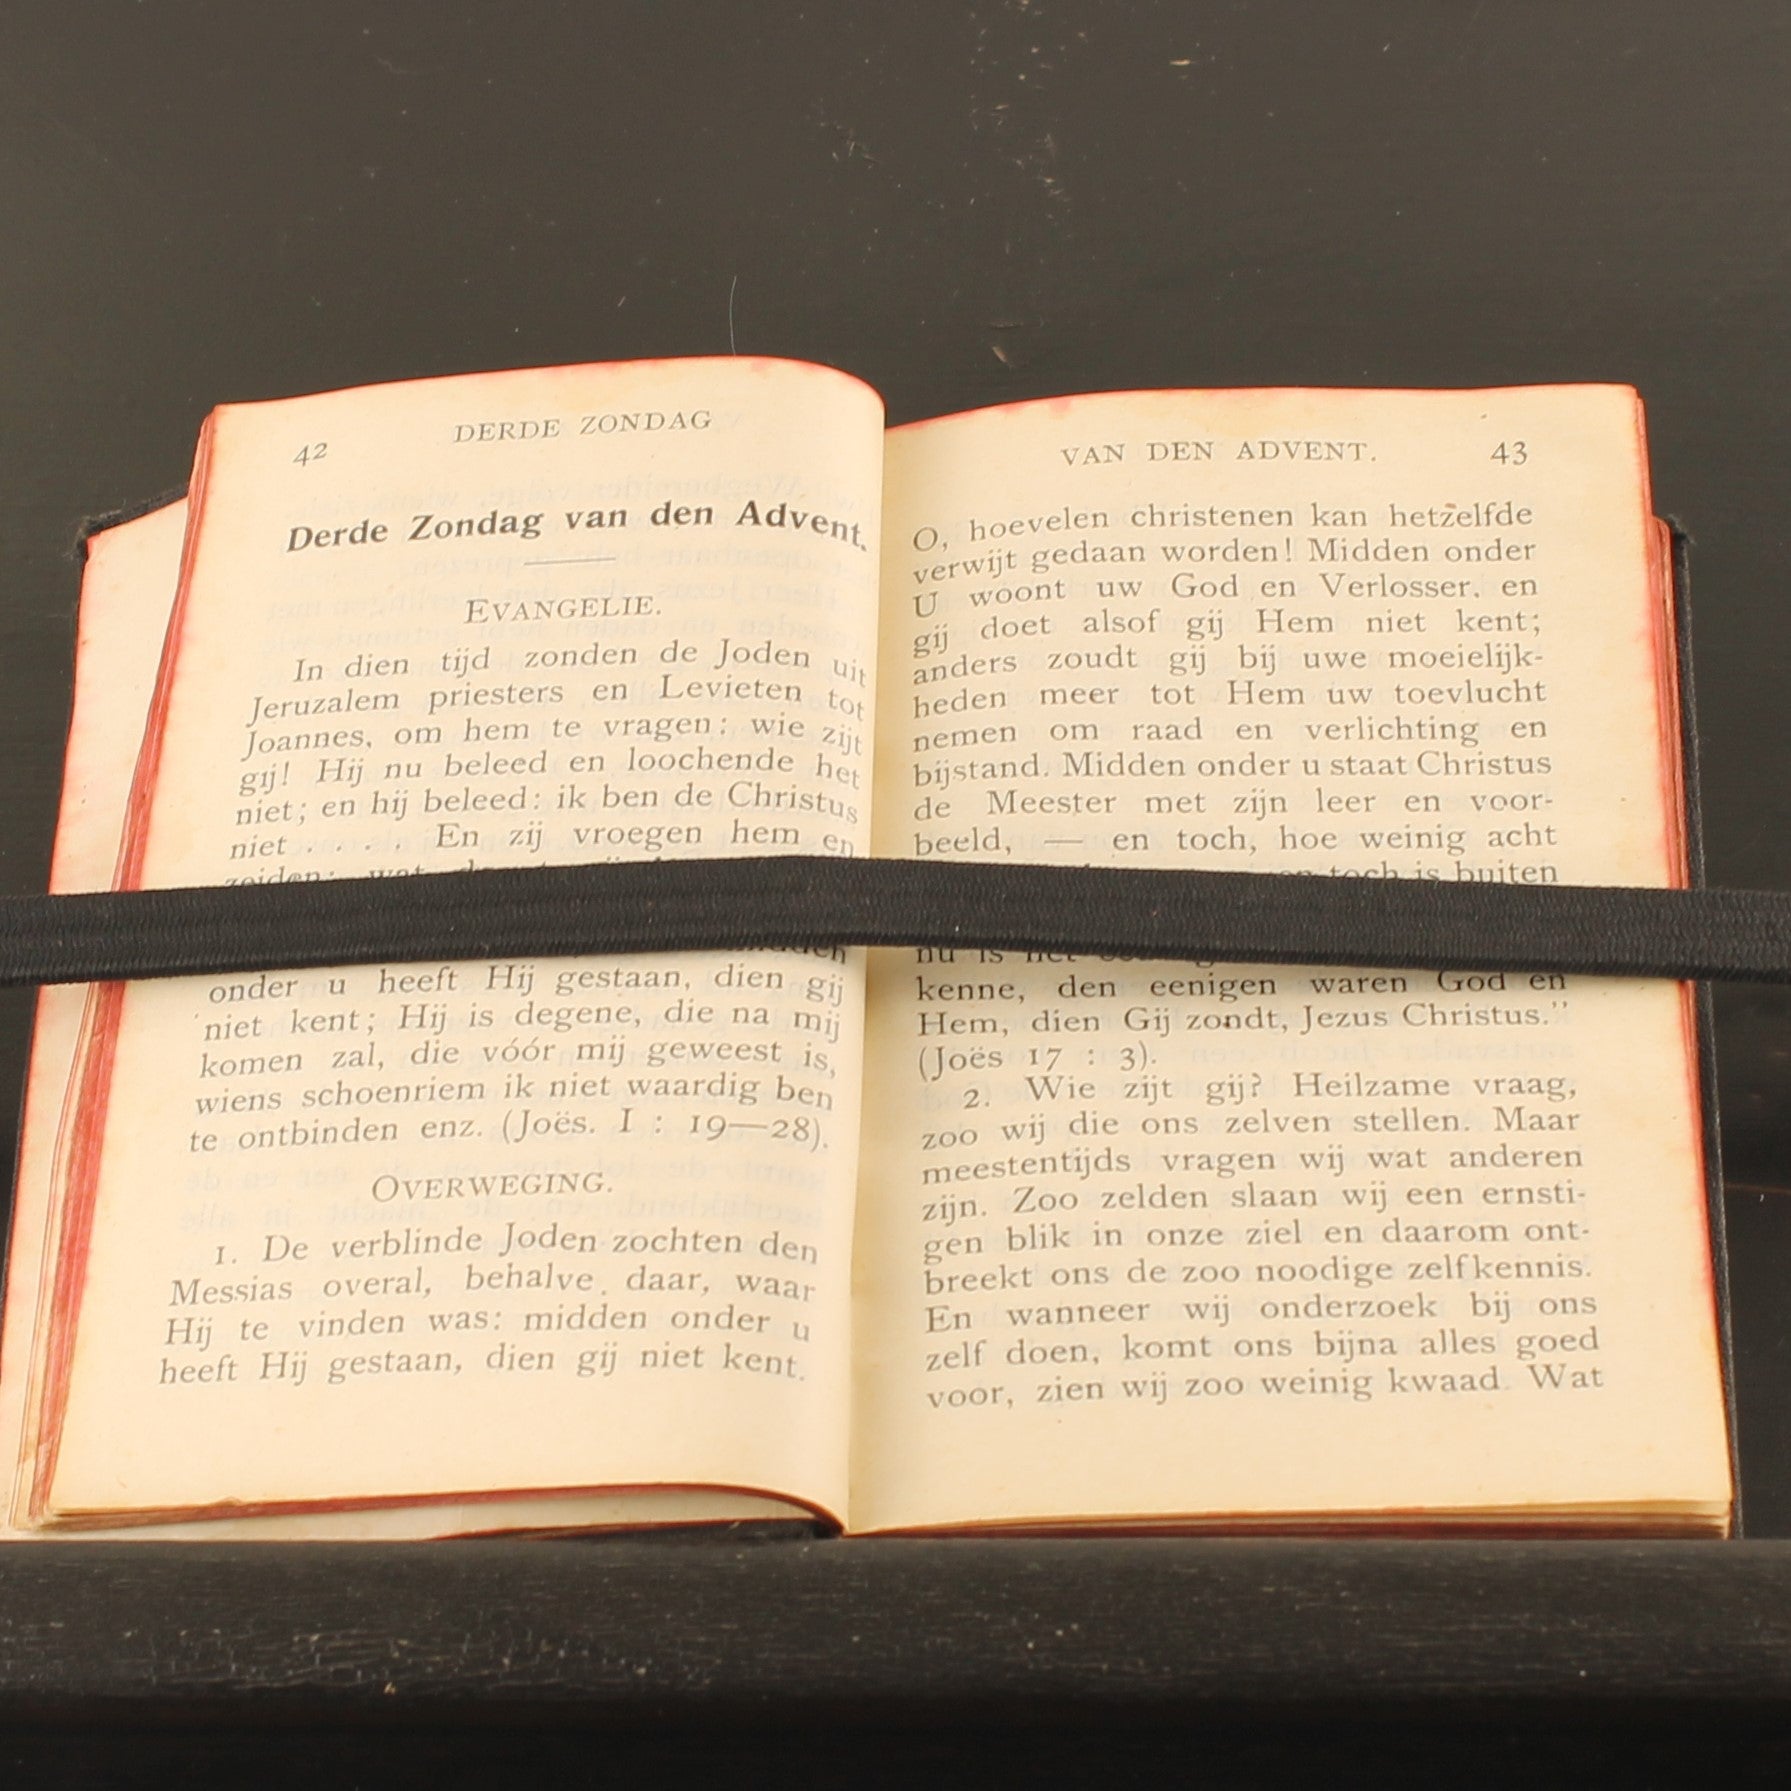 42
DERDE ZONDAG
Derde Zondag van den Advent.
EVANGELIE.
In dien tijd zonden de Joden uit
Jeruzalem priesters en Levieten tot
Joannes, om hem te vragen: wie zijt
gij! Hij nu beleed en loochende het
niet; en hij beleed: ik ben de Christus
niet . . . . En zij vroegen hem en
zeiden: wat
midden
onder u heeft Hij gestaan, dien gij
niet kent; Hij is degene, die na mij
komen zal, die vóór mij geweest is,
wiens schoenriem ik niet waardig ben
te ontbinden enz. (Joës. I : 19—28).
OVERWEGING.
1. De verblinde Joden zochten den
Messias overal, behalve daar, waar
Hij te vinden was: midden onder u
heeft Hij gestaan, dien gij niet kent.
VAN DEN ADVENT.
43
O, hoevelen christenen kan hetzelfde
verwijt gedaan worden! Midden onder
U woont uw God en Verlosser, en
gij doet alsof gij Hem niet kent;
anders zoudt gij bij uwe moeielijk-
heden meer tot Hem uw toevlucht
nemen om raad en verlichting en
bijstand. Midden onder u staat Christus
de Meester met zijn leer en voor-
beeld, — en toch, hoe weinig acht
en toch is buiten
nu is het
kenne, den eenigen waren God en
Hem, dien Gij zondt, Jezus Christus.”
(Joës 17 : 3).
2. Wie zijt gij? Heilzame vraag,
zoo wij die ons zelven stellen. Maar
meestentijds vragen wij wat anderen
zijn. Zoo zelden slaan wij een ernsti-
gen blik in onze ziel en daarom ont-
breekt ons de zoo noodige zelfkennis.
En wanneer wij onderzoek bij ons
zelf doen, komt ons bijna alles goed
voor, zien wij zoo weinig kwaad. Wat